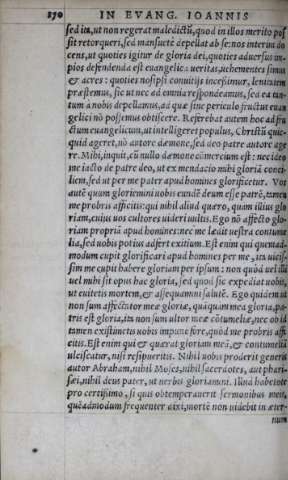 270 IN EVANG. IOANNIS
sed ita, ut non regerat maledictū, quod in illos merito pos
sit retorqueri, sed mansuetè depellat ab se: nos interim do
cens, ut quoties igitur de gloria dei, quoties aduersus im-
pios defendenda est euangelica ueritas, uehementes simus
& acres: quoties nosipsi conuitijs incessimur, lenitatem
præstemus, sic ut nec ad omnia respondeamus, sed ea tan-
tum à nobis depellamus, ad quæ sine periculo fructus euan
gelici nō possemus obticere. Referebat autem hoc ad fru
ctum euangelicum, ut intelligeret populus, Christū quic-
quid ageret, nō autore dæmone, sed deo patre autore age
re. Mihi, inquit, cū nullo dæmone cōmercium est: nec ideo
me iacto de patre deo, ut ex mendacio mihi gloriā conci-
liem, sed ut per me pater apud homines glorificetur. Vos
autē quum gloriemini uobis eundē deum esse patrē, tamen
me probris afficitis: qui nihil aliud quæro, quàm illius glo
riam, cuius uos cultores uideri uultis. Ego nō affecto glo-
riam propriā apud homines: nec me lædit uestra contume
lia, sed uobis potius adfert exitium. Est enim qui quemad-
modum cupit glorificari apud homines per me, ita uicis-
sim me cupit habere gloriam per ipsum: non quòd uel illi
uel mihi sit opus hac gloria, sed quod sic expediat uobis,
ut euitetis mortem, & assequamini salutē. Ego quidem ut
non sum affectator meæ gloriæ, quāquam mea gloria, pa-
tris est gloria, ita non sum ultor meæ cōtumeliæ, nec ob id
tamen existimetis uobis impune fore, quòd me probris affi
citis. Est enim qui & quærat gloriam meā, & contumeliā
ulciscatur, nisi resipueritis. Nihil uobis proderit generis
autor Abraham, nihil Moses, nihil sacerdotes, aut phari-
sæi, nihil deus pater, ut uerbis gloriamini. Illud habetote
pro certissimo, si quis obtemperauerit sermonibus meis,
quēadmodum frequenter dixi, mortē non uidebit in æter-
num